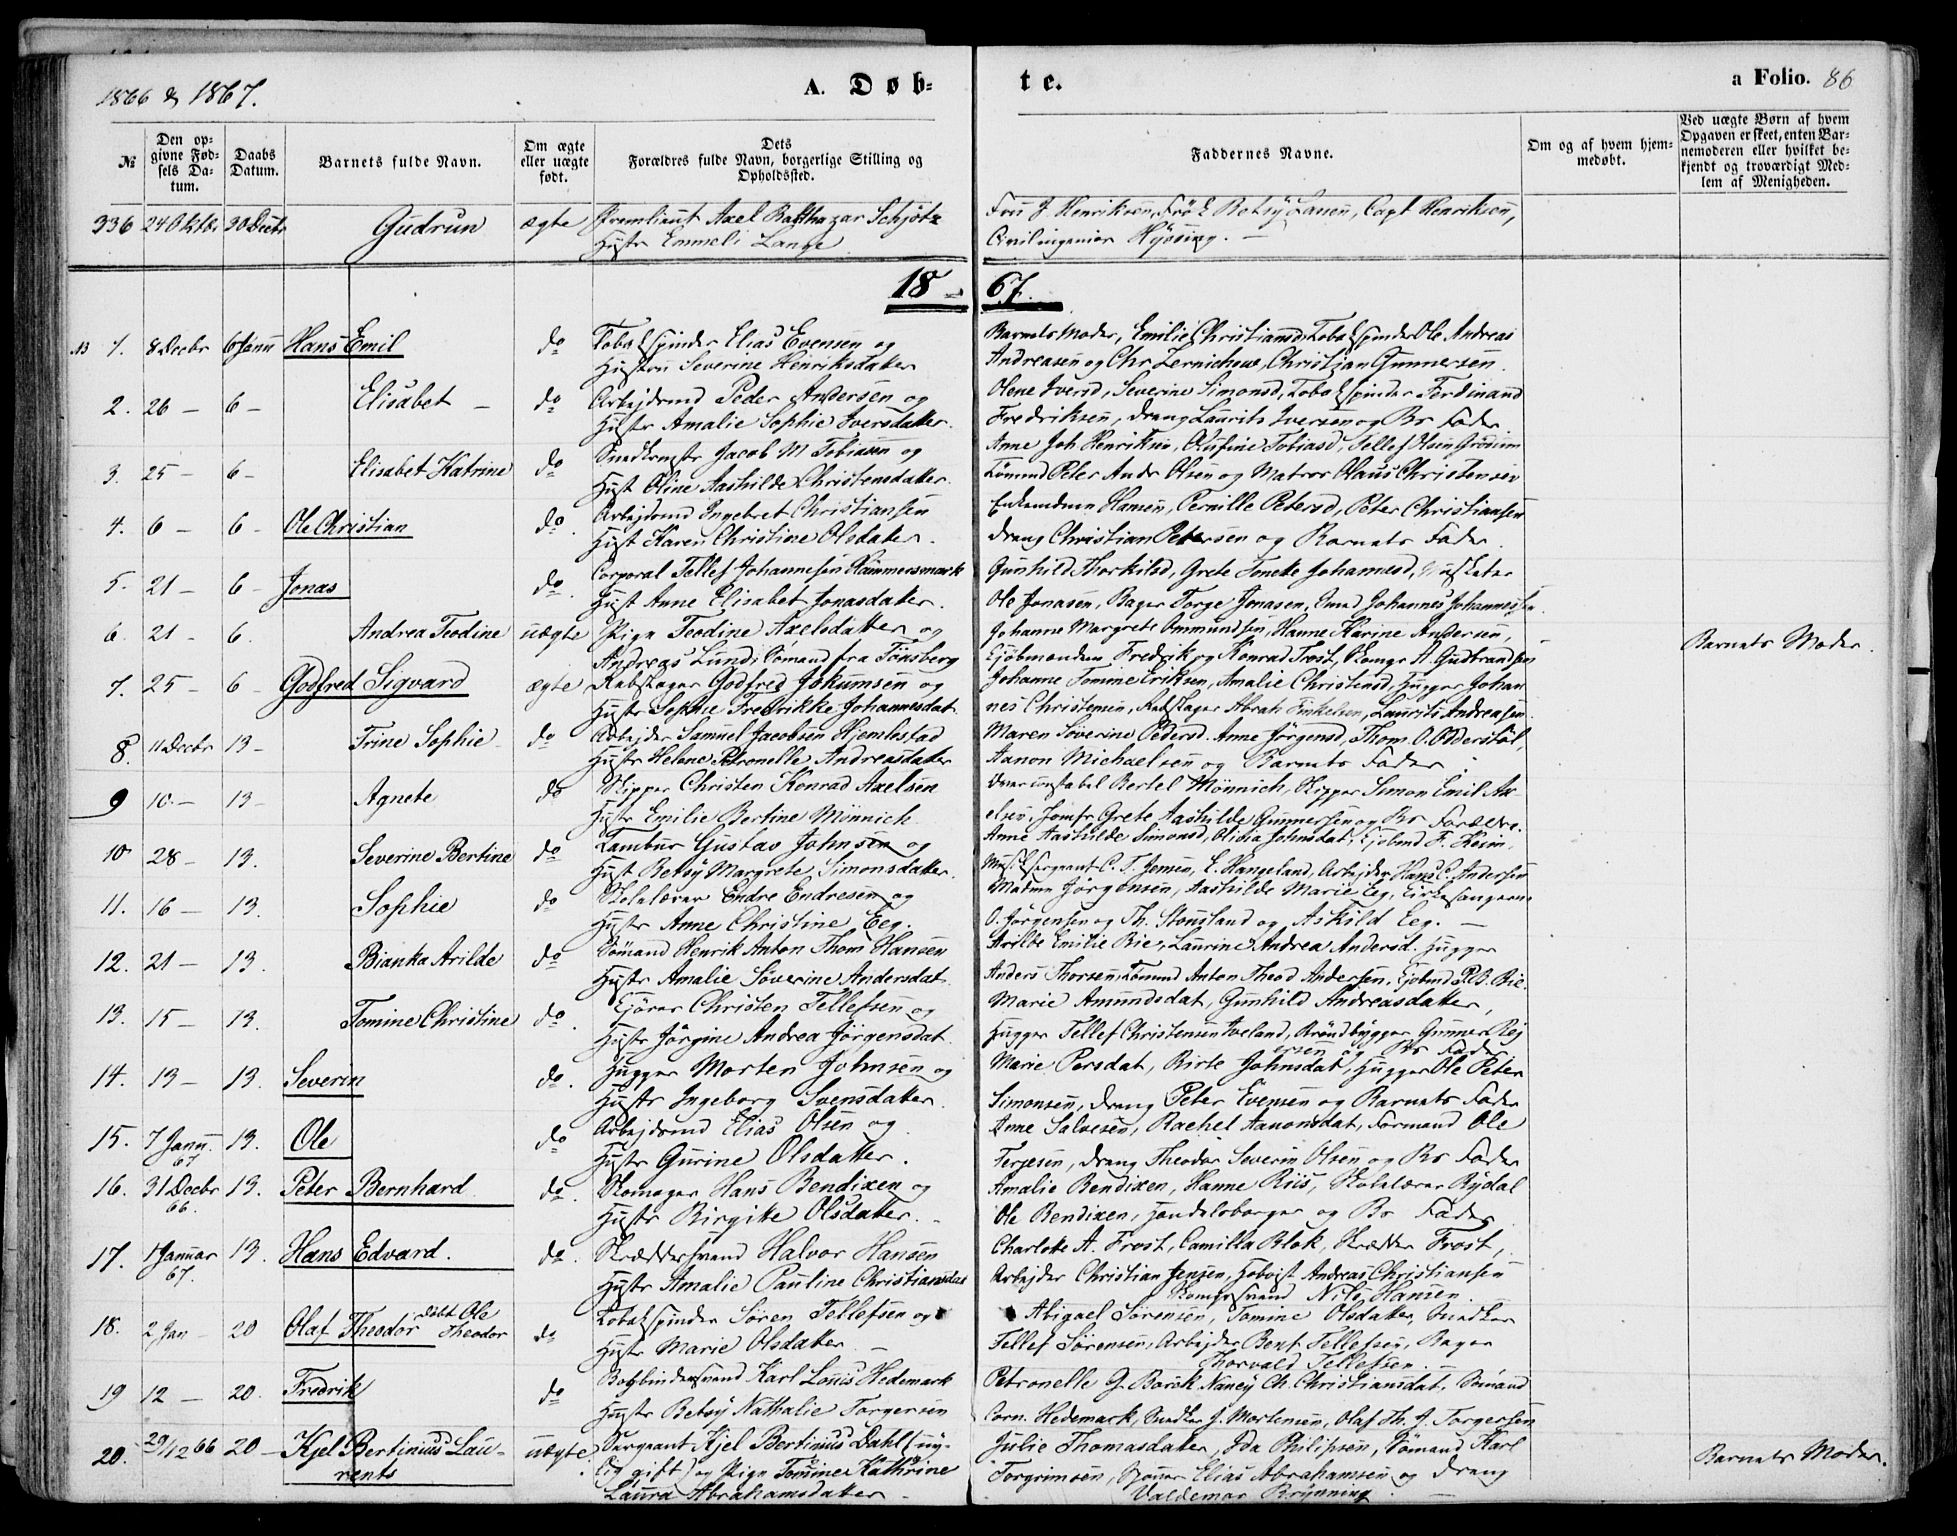 1866 & 1867.
A. Døb-
te.
a Folio. 86
№
Den op-
givne Fød-
sels Da-
tum.
Daabs
Datum.
Barnets fulde Navn.
Om ægte
eller uægte
født.
Dets
Forældres fulde Navn, borgerlige Stilling og
Opholdssted.
Faddernes Navne.
Om og af hvem hjem-
medøbt.
Ved uægte Børn af hvem
Opgaven er skeet, enten Bar-
nemoderen eller hvilket be-
kjendt og troværdigt Med-
lem af Menigheden.
336 24 Oktbr 30 Decbr Gudrun ægte Premlieut Axel Balthazar Schjøtz
Hustr Emmeli Lange
Fru J. Henriksen, Frø E Betsy Lassen, Capt Henriksen,
Civilingeniør Hyssing. —
18 67.
1. 8 Decbr 6 Janu Hans Emil do Tobakspinder Elias Evensen og
Hustru Severine Henriksdatter
Barnets Moder, Emilie Christiansd, Tobakspinder Ole Andreas
Andreasen og Chr Zernichow, Christian Gunnersen.
2. 26 — 6 — Elisabet — do Arbejdsmd Peder Andersen og
Hustr Amalie Sophie Iversdatter.
Olene Iversd, Severine Simonsd, Tobakspinder Ferdinand
Fredriksen, dreng Laurits Iversen og Bs Fader.
3. 25 — 6 — Elisabet Katrine do Snedkermstr Jacob M Tobiasen og
Hust Oline Aashilde Christensdatter.
Anne Joh Henriksen, Olufine Tobiasd, Tellef Olsen
Tømmd Peter Andr Olsen og Matros Olaus Christensen
4. 6 — 6 — Ole Christian do. Arbejdsmd Ingebret Christiansen
Hust Karen Christine Olsdatter.
Hansen, Pernille Petersd, Peter Christiansen
dreng Christian Petersen og Barnets Fader.
5. 21 — 6 — Jonas do. Corporal Tellef Johannesen Hammersmark
Hust Anne Elisabet Jonasdatter.
Gunhild Thorkildsd, Grete Johannesd, Musketer
Ole Jonasen, Bager Torge Jonasen, Johannes Johannessen.
6. 21 — 6. Andrea Teodine uægte Pige Teodine Axelsdatter og
Andreas Lund, Sømand fra Tønsberg
Johanne Margrete Ommundsen, Hanne Karine Andersen,
Ejøbmændene Fredrik og Konrad Trost, Skomgr A. Gudbrandsen
Barnets Moder.
7. 25 — 6 — Godfred Sigvard ægte Rebslager Godfred Jokumsen og
Hustr Sophie Fredrikke Johannesdat.
Johanne Tomme Eriksen, Amalie Christensd, Hugger Johan
nes Christensen, Rebslager Abrah Finkelsen, Laurits Andreasen.
8. 11 Decbr 13 — Trine Sophie — do Arbejder Samuel Jacobsen Hjemlestad
Hustr Helene Petronelle Andreasdatter
Maren Søverine Pedersd. Anne Jørgensd, Thom. O. Odderstøl,
Aanon Michaelsen og Barnets Fader.
9 10. — 13 — Agnete do Skipper Christen Konrad Axelsen
Hustr Emilie Bertine Mønnich
Overconstabel Bertel Mønnich, Skipper Simon Emil Ax-
elsen, Jomfr Grete Aashilde Gunnersen og Bs Forældre.
10 28 — 13. Severine Bertine do Tambur Gustav Johnsen og
Hust Betsy Margrete Simonsdatter.
Anne Aashilde Simonsd, Olivia Johnsdat, Ejøbmd F. Keim,
Musiksergeant C. T. Jensen, E. Hangeland, Arbejder Hans C. Andersen
11. 16 — 13. Sophie do Skolelærer Endre Endresen og
Hustr Anne Christine Eeg.
Madmm Jørgensen, Aashilde Marie Eeg, Kirkesangerne
O. Jørgensen og Th. Stousland og Askild Eeg. —
12. 21 — 13. Bianka Arilde do Sømand Henrik Anton Thom Hansen
Hustr Amalie Søverine Andersdat.
Arilde Emilie Bie, Laurine Andrea Andersd. Hugger
Anders Thorsen, Tømmd Anton Theod Andersen, Ejøbmd P. B. Bie.
13. 15 — 13. Tomine Christine do. Ejører Christen Tellefsen og
Hustr Jørgine Andrea Jørgensdat.
Marie Amundsdat, Gunhild Andreasdatter,
Hugger Tellef Christensen Iveland, Brøndbygger Gunner Rej
ersen og Bs Fader
14. 13 — 13. Severin do. Hugger Morten Johnsen og
Hustr Ingeborg Svensdatter.
Marie Persdat, Birte Johnsdat, Hugger Ole Peter
Simonsen, dreng Peter Evensen og Barnets Fader
15. 7 Janu. 67 13. Ole do Arbejdsmd Elias Olsen og
Hustr Gurine Olsdatter.
Anne Salvesen, Rachel Aanonsdat, Formand Ole
Terjesen, dreng Theodor Severin Olsen og Bs Fader
16. 31 Decbr 66. 13. Peter Bernhard do. Skomager Hans Bendixen og
Hustr Birgitte Olsdatter. —
Amalie Bendixen, Hanne Riis, Skolelærer Rydal
Ole Bendixen, Handelsborger og Bs Fader
17. 1 Januar 67. 13. Hans Edvard. do. Skræddersvend Halvor Hansen
Hustr Amalie Pauline Christiansdat
Charlotte A. Frost, Camilla Blok, Skrædder Frost,
Arbejder Christian Jensen, Hoboist Andreas Christiansen
Skomgrsvend Nils Hansen
18. 2 Jan — 20 Olaf Theodor døbt Ole Theodor do Tobakspinder Søren Tellefsen og
Hustr Marie Olsdatter —
Abigael Sørensen, Tomine Olsdatter, Snedker
Tellef Sørensen, Arbejder Bent Tellefsen, Bager
Thorvald Tellefsen. —
19 12 — 20. Fredrik do Bogbindersvend Karl Louis Hedemark
Hustr Betsy Nathalie Torgersen
Petronelle G. Borck Nancy Ch. Christiansdat, Sømand
Corn. Hedemark, Snedker J. Mortensen, Olaf Th. J. Torgersen
20. 29/12 66 20 — Kjel Bertinius Lau-
rents uægte. Sergeant Kjel Bertinius Dahl (
lig gift) og Pige Tomine Kathrine
Laura Abrahamsdatter —
Julie Thomasdatter, Ida Philipsen, Sømand Karl
Torgrimsen, Elias Abrahamsen og dreng
Valdemar Brynning. —
Barnets Moder.